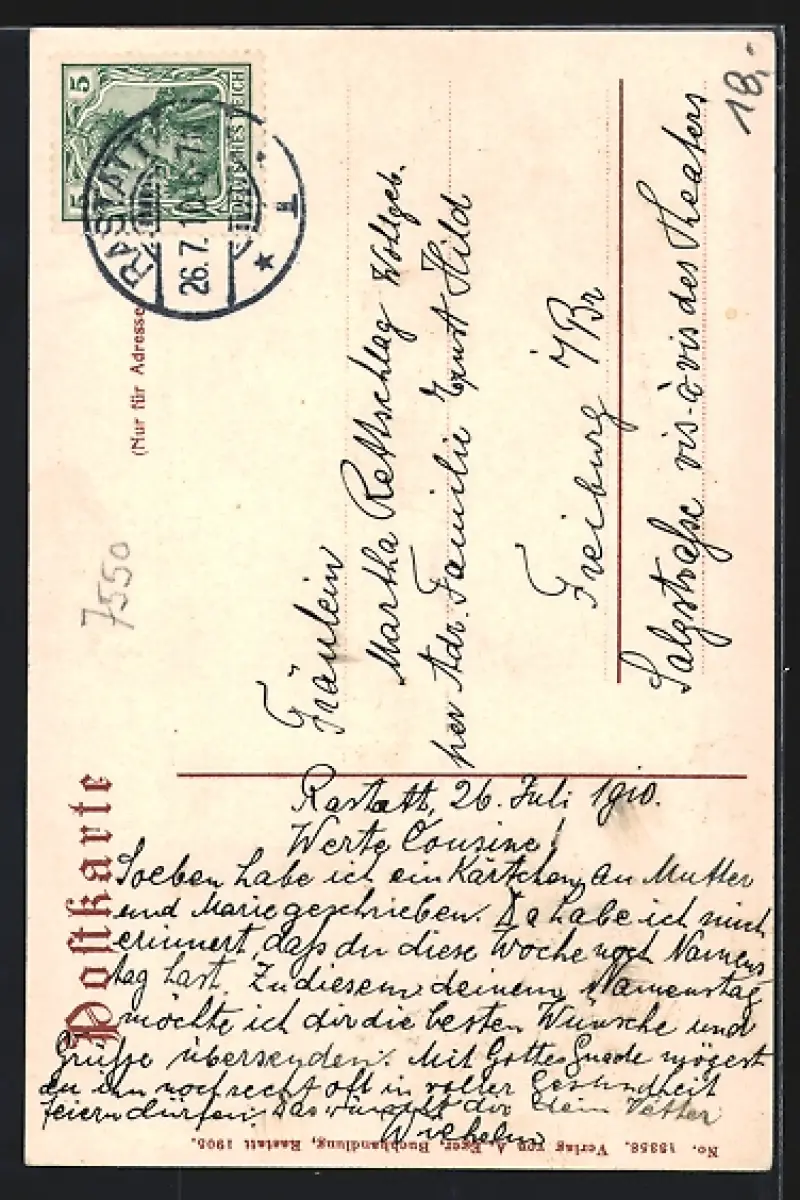 Postkarte
(Nur für Adresse
DEUTSCHES REICH
5
5
RASTATT
26.7.10.6-7N
* 1
18,-
7550
Fräulein
Martha Rettschlag Wohlgeb.
per Adr. Familie Ernst Hild
Freiburg i/Br
Salzstraße vis-à-vis des Theaters
Rastatt, 26. Juli 1910.
Werte Cousine!
Soeben habe ich ein Kärtchen an Mutter
und Marie geschrieben. Da habe ich mich
erinnert daß du diese Woche noch Namens
tag hast. Zu diesem deinem Namenstag
möchte ich dir die besten Wünsche und
Grüße übersenden. Mit Gottes Gnade mögest
du ihn noch recht oft in voller Gesundheit
feiern dürfen das wünscht dir dein Vetter
Wilhelm
No. 18358. Verlag von A. Eger, Buchhandlung, Rastatt 1905.